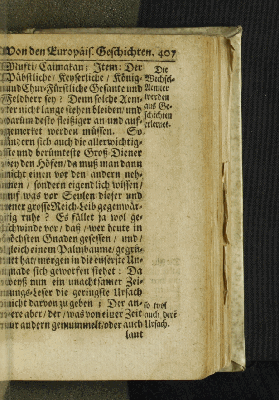 Von den Europäis. Geschichten. 407
Mufti / Caimakan; Item: Der
Päbstliche / Keyserliche / König-
und Chur-Fürstliche Gesante und
Feldherr sey? Denn solche Aem-
ter nicht lange stehen bleiben / und
darum desto fleissiger an- und auf-
gemerket werden müssen. So
ändern sich auch die allerwichtig-
ste und berümteste Groß-Diener
bey den Höfen / da muß man dann
nicht einen vor den andern neh-
men / sondern eigentlich wissen /
auf was vor Seulen dieser und
jener grosse Reich-Leib gegenwär-
tig ruhe? Es fället ja wol ge-
schwinde vor / daß / wer heute in
höchsten Gnaden gesessen / und /
gleich einem Palmbaume / gegrü-
net hat / morgen in die eusserste Un-
gnade sich geworfen siehet: Da
weyß nun ein unachtsamer Zei-
tungs-Leser die geringste Ursach
nicht darvon zu geben; Der an-
dere aber / der / was von einer Zeit
zur andern gemummelt / oder auch
laut
Die
Wechsel-
Aemter
werden
aus Ge-
schichten
erlernet.
so wol
auch dere
Ursach.